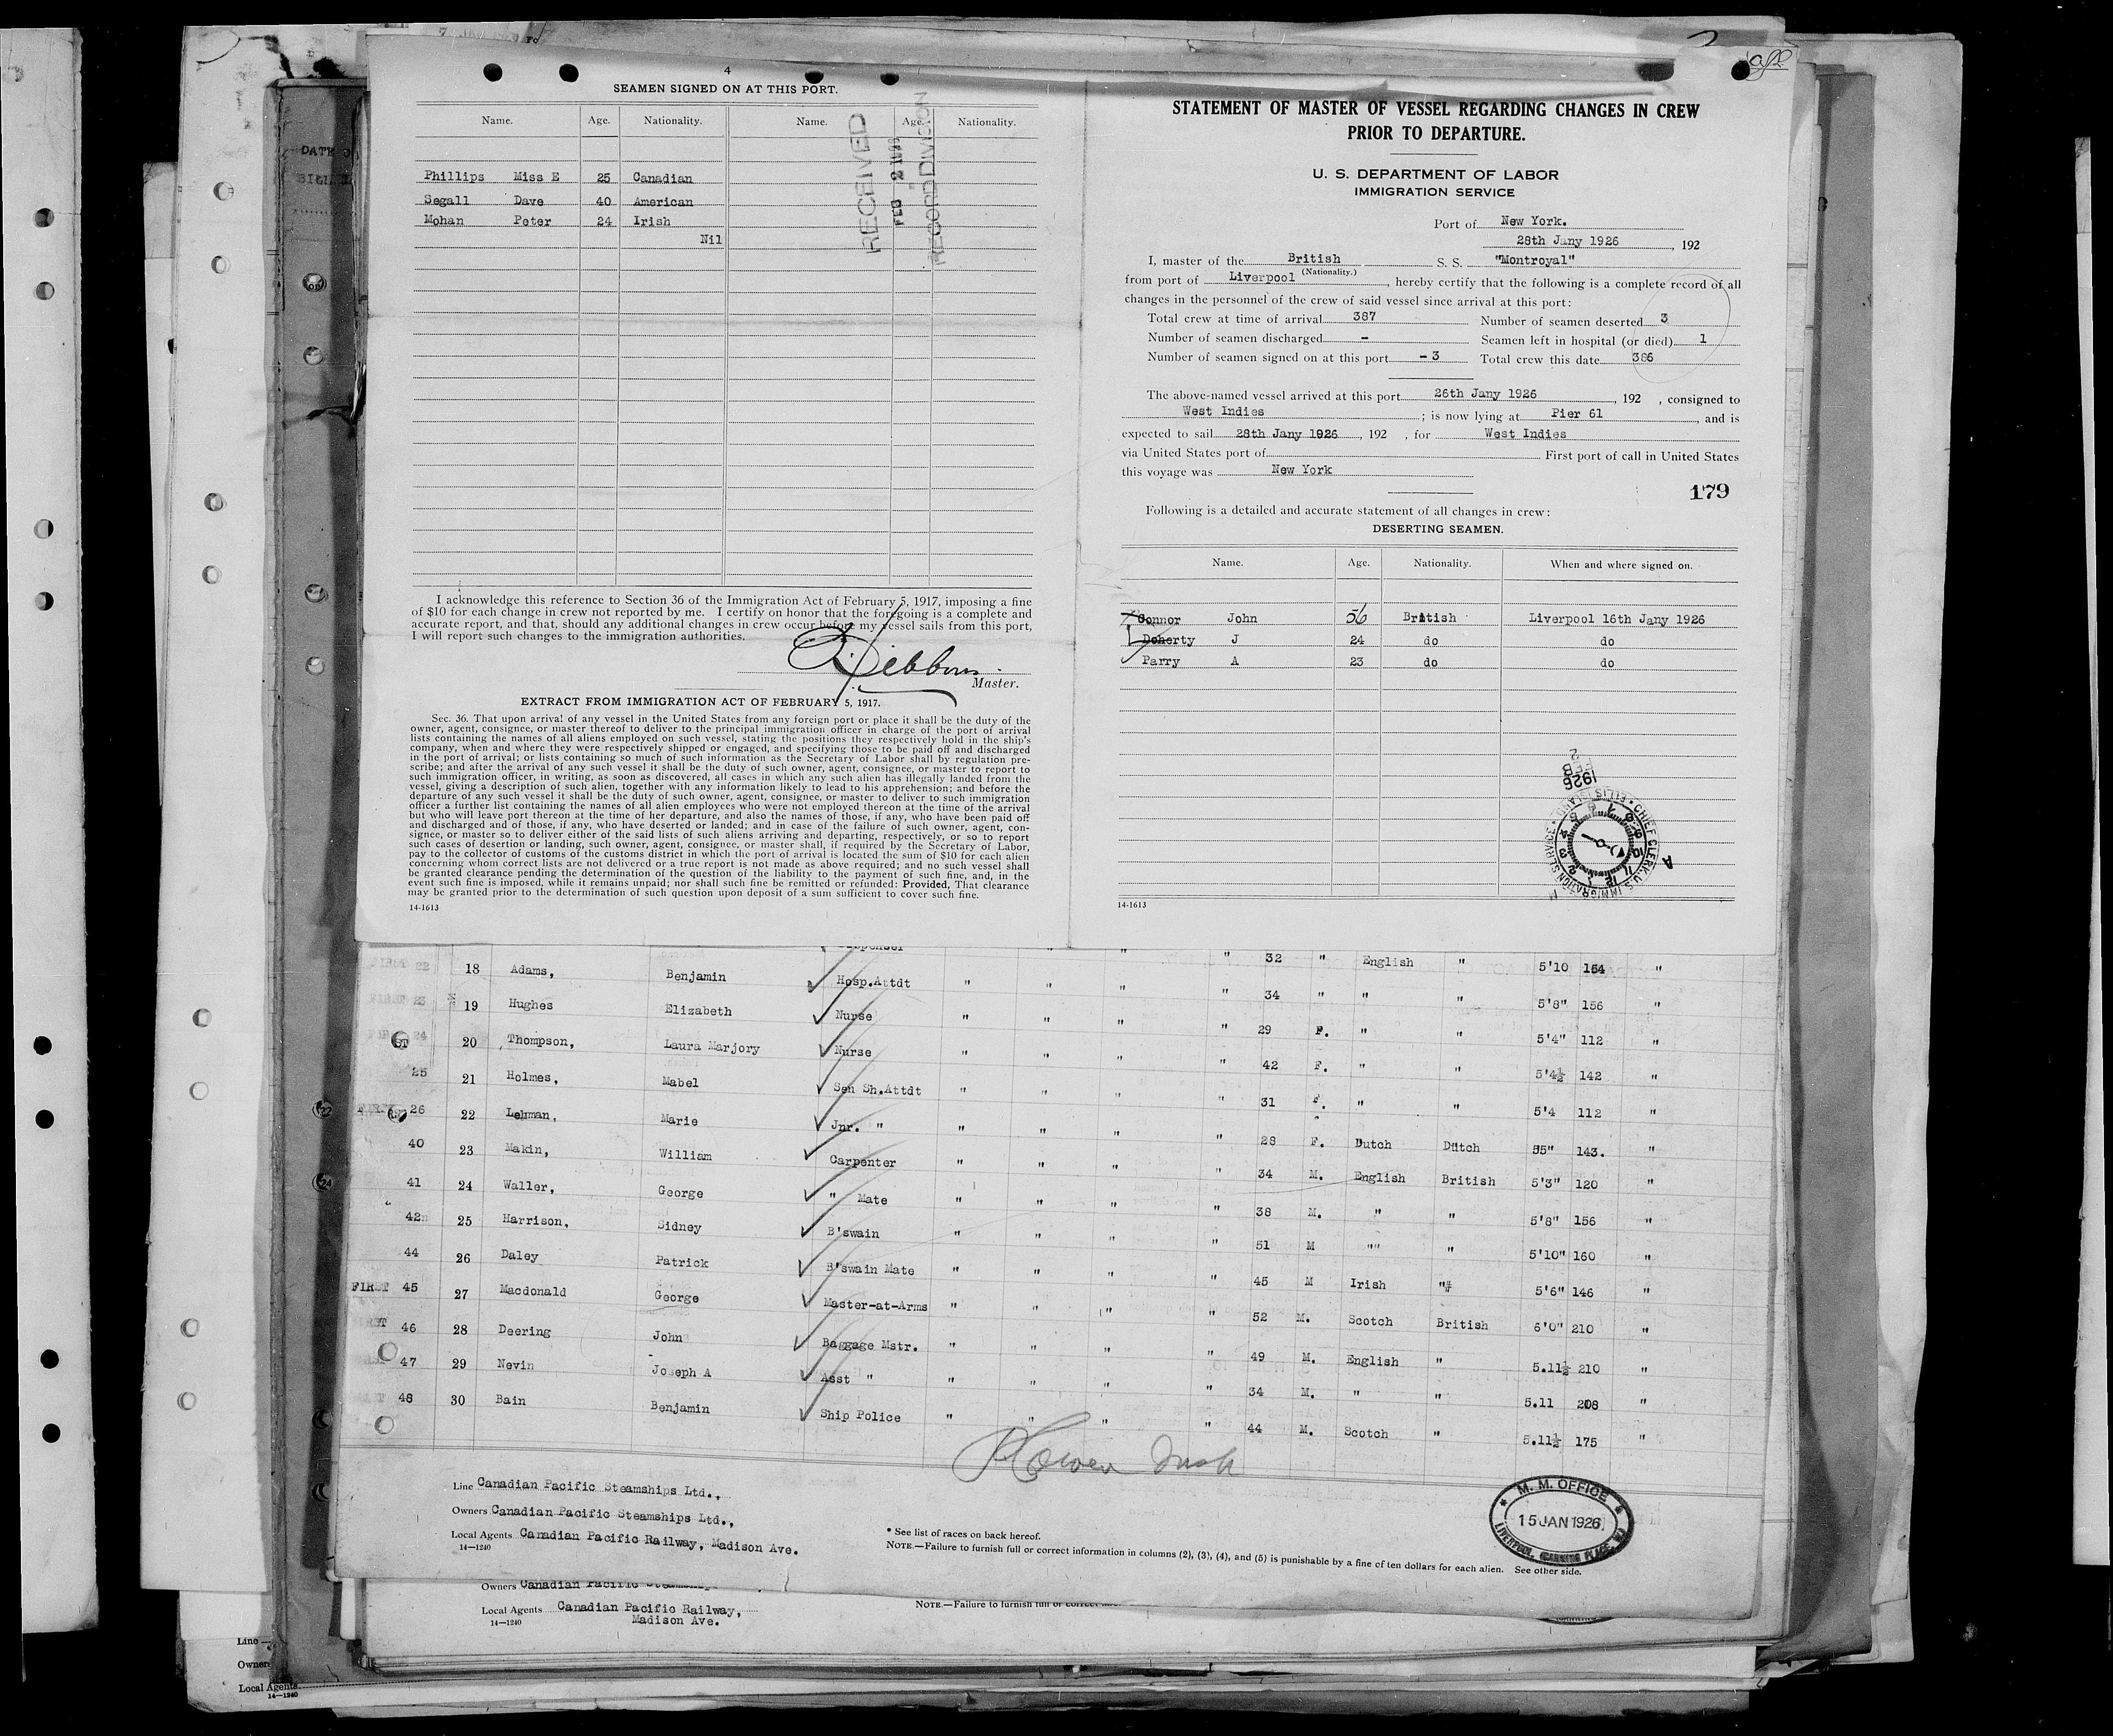 4
SEAMEN SIGNED ON AT THIS PORT.
Name. Age. Nationality. Name. Age. Nationality.
Phillips Miss E 25 Canadian
Segall Dave 40 American
Mohan Peter 24 Irish
Nil
RECEIVED
FEB 2 1926
RECORD DIVISION
I acknowledge this reference to Section 36 of the Immigration Act of February 5, 1917, imposing a fine
of $10 for each change in crew not reported by me. I certify on honor that the foregoing is a complete and
accurate report, and that, should any additional changes in crew occur before my vessel sails from this port,
I will report such changes to the immigration authorities.
Master.
EXTRACT FROM IMMIGRATION ACT OF FEBRUARY 5, 1917.
Sec. 36. That upon arrival of any vessel in the United States from any foreign port or place it shall be the duty of the
owner, agent, consignee, or master thereof to deliver to the principal immigration officer in charge of the port of arrival
lists containing the names of all aliens employed on such vessel, stating the positions they respectively hold in the ship's
company, when and where they were respectively shipped or engaged, and specifying those to be paid off and discharged
in the port of arrival; or lists containing so much of such information as the Secretary of Labor shall by regulation pre-
scribe; and after the arrival of any such vessel it shall be the duty of such owner, agent, consignee, or master to report to
such immigration officer, in writing, as soon as discovered, all cases in which any such alien has illegally landed from the
vessel, giving a description of such alien, together with any information likely to lead to his apprehension; and before the
departure of any such vessel it shall be the duty of such owner, agent, consignee, or master to deliver to such immigration
officer a further list containing the names of all alien employees who were not employed thereon at the time of the arrival
but who will leave port thereon at the time of her departure, and also the names of those, if any, who have been paid off
and discharged and of those, if any, who have deserted or landed; and in case of the failure of such owner, agent, con-
signee, or master so to deliver either of the said lists of such aliens arriving and departing, respectively, or so to report
such cases of desertion or landing, such owner, agent, consignee, or master shall, if required by the Secretary of Labor,
pay to the collector of customs of the customs district in which the port of arrival is located the sum of $10 for each alien
concerning whom correct lists are not delivered or a true report is not made as above required; and no such vessel shall
be granted clearance pending the determination of the question of the liability to the payment of such fine, and, in the
event such fine is imposed, while it remains unpaid; nor shall such fine be remitted or refunded: Provided, That clearance
may be granted prior to the determination of such question upon deposit of a sum sufficient to cover such fine.
14-1613
STATEMENT OF MASTER OF VESSEL REGARDING CHANGES IN CREW
PRIOR TO DEPARTURE.
U. S. DEPARTMENT OF LABOR
IMMIGRATION SERVICE
Port of New York.
28th Jany 1926, 192
I, master of the British S. S. "Montroyal"
(Nationality.)
from port of Liverpool, hereby certify that the following is a complete record of all
changes in the personnel of the crew of said vessel since arrival at this port:
Total crew at time of arrival 387 Number of seamen deserted 3
Number of seamen discharged - Seamen left in hospital (or died) 1
Number of seamen signed on at this port - 3 Total crew this date 386
The above-named vessel arrived at this port 26th Jany 1926, 192 , consigned to
West Indies ; is now lying at Pier 61, and is
expected to sail 28th Jany 1926, 192 , for West Indies
via United States port of First port of call in United States
this voyage was New York
179
Following is a detailed and accurate statement of all changes in crew:
DESERTING SEAMEN.
Name. Age. Nationality. When and where signed on.
Connor John 56 British Liverpool 16th Jany 1926
Doherty J 24 do do
Parry A 23 do do
1926
FEB
2
CHIEF CLERK. U.S. IMMIGRATION SERVICE • ELLIS ISLAND
14-1613
32 " English " 5'10 154 "
18 Adams, Benjamin Hosp.Attdt " " " " 34 " " " 5'8" 156 "
19 Hughes Elizabeth Nurse " " " " 29 F. " " 5'4" 112 "
20 Thompson, Laura Marjory Nurse " " " " 42 F. " " 5'4½ 142 "
25 21 Holmes, Mabel Sen Sh.Attdt " " " " 31 F. " " 5'4 112 "
26 22 Lehman, Marie Jnr. " " " " " 28 F. Dutch Dutch 55" 143. "
40 23 Makin, William Carpenter " " " " 34 M. English British 5'3" 120 "
41 24 Waller, George " Mate " " " " 38 M. " " 5'8" 156 "
42 25 Harrison, Sidney B'swain " " " " 51 M "" " 5'10" 160 "
44 26 Daley Patrick B'swain Mate " " " " 45 M Irish " 5'6" 146 "
FIRST 45 27 Macdonald George Master-at-Arms " " " " 52 M. Scotch British 6'0" 210 "
46 28 Deering John Baggage Mstr. " " " " 49 M. English " 5.11½ 210 "
47 29 Nevin Joseph A Asst " " " " " 34 M. " " 5.11 208 "
48 30 Bain Benjamin Ship Police " " " " 44 M. Scotch " 5.11½ 175 "
Line Canadian Pacific Steamships Ltd.,
Owners Canadian Pacific Steamships Ltd.,
Local Agents Canadian Pacific Railway, Madison Ave.
14—1240
* See list of races on back hereof.
NOTE.—Failure to furnish full or correct information in columns (2), (3), (4), and (5) is punishable by a fine of ten dollars for each alien. See other side.
M. M. OFFICE
15 JAN 1926
LIVERPOOL, CANNING PLACE,
Owners Canadian Pacific
Local Agents Canadian Pacific Railway,
Madison Ave.
14—1240
NOTE.—Failure to furnish full or correct
Line
Owners
Local Agents
14—1240